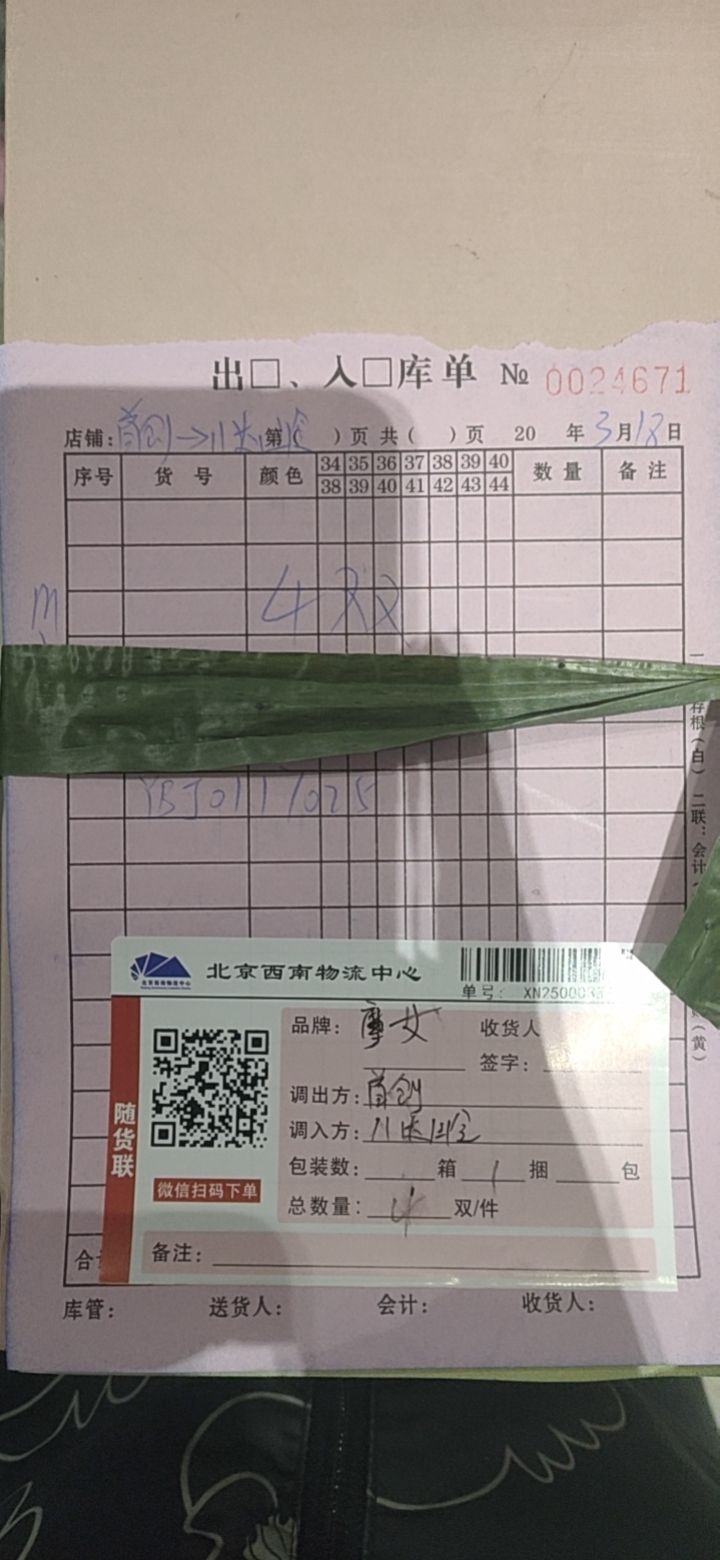 出□、入□库单 № 0024671
店铺: 首创→ 第 ）页 共（ ）页 20 年 3月18日
序号 货号 颜色 34 35 36 37 38 39 40 数量 备注
38 39 40 41 42 43 44
4双
m
YBJ0111025
存根（白）二联：会计
（黄）
北京西南物流中心
单号: XN25000
品牌: 摩女 收货人
签字:
调出方: 首创
调入方:
包装数: 箱 1 捆 包
总数量: 4 双/件
随货联
微信扫码下单
备注:
合
库管: 送货人: 会计: 收货人: